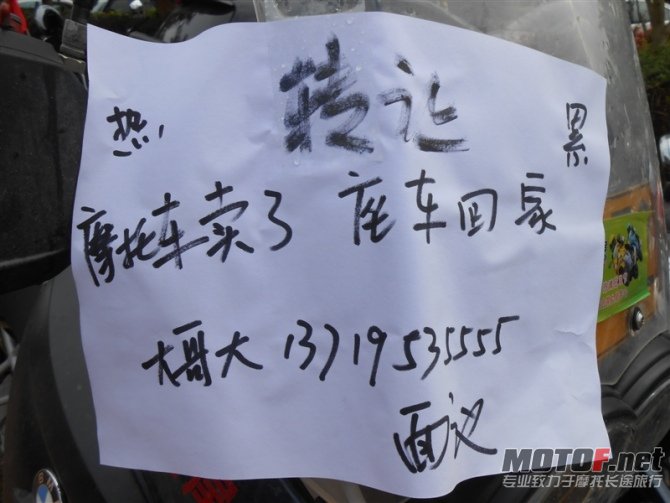 转让
热 累
摩托车卖了 座车回家
大哥大 13719535555
面议
MOTOF.net
专业致力于摩托长途旅行